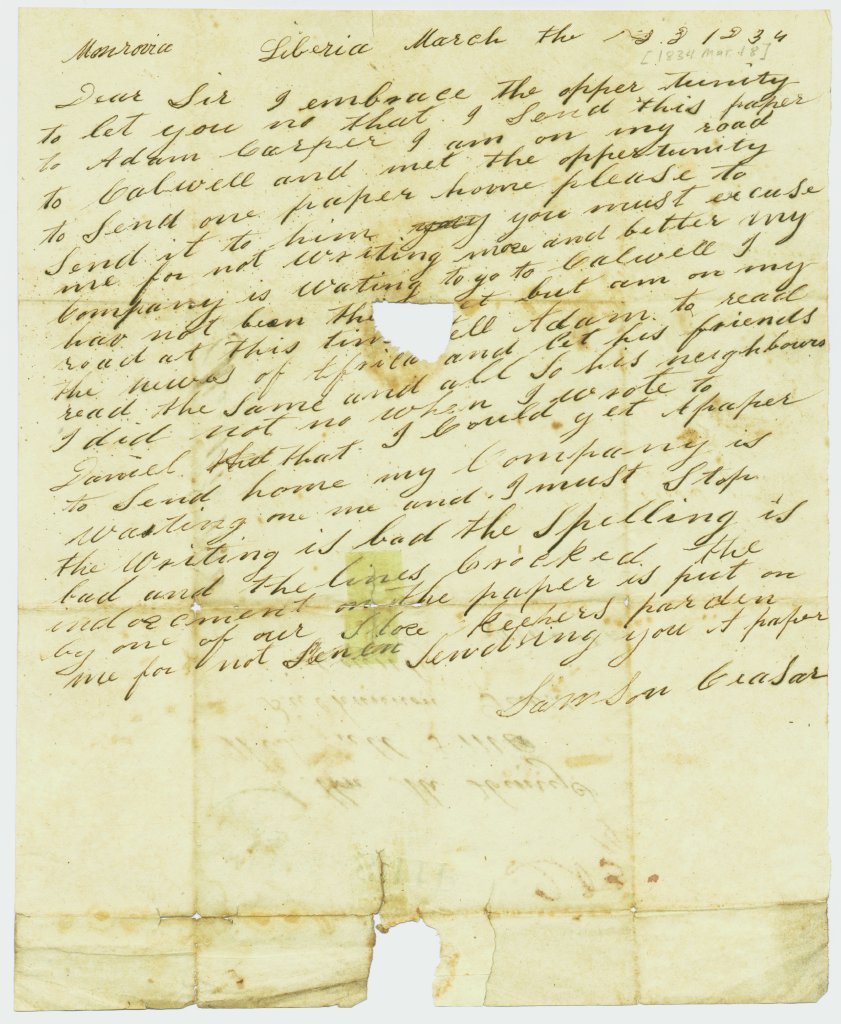 Monrovia Liberia March the 1834
[1834 Mar. 18]
Dear Sir I embrace the opper tunity
to let you no that I Send this paper
to Adam Carper I am on my road
to Calwell and met the oppertunity
to Send one paper home please to
Send it to him you must excuse
me for not Writing more and better my
Company is Wating to go to Calwell I
hav not been but am on my
road at this Adam to read
the news of Africa and let his friends
read the Same and all So his neighbours
I did not no when I wrote to
Daniel that I Could get A paper
to Send home my Company is
Waiting one me and I must Stop
the Writing is bad the Spelling is
bad and the lines Crocked the
indorcment on the paper is put on
by one of our Store keepers parden
me for not Sending you A paper
Samson Ceasar